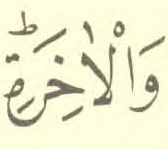 وَالْاٰخِرَةِؕ